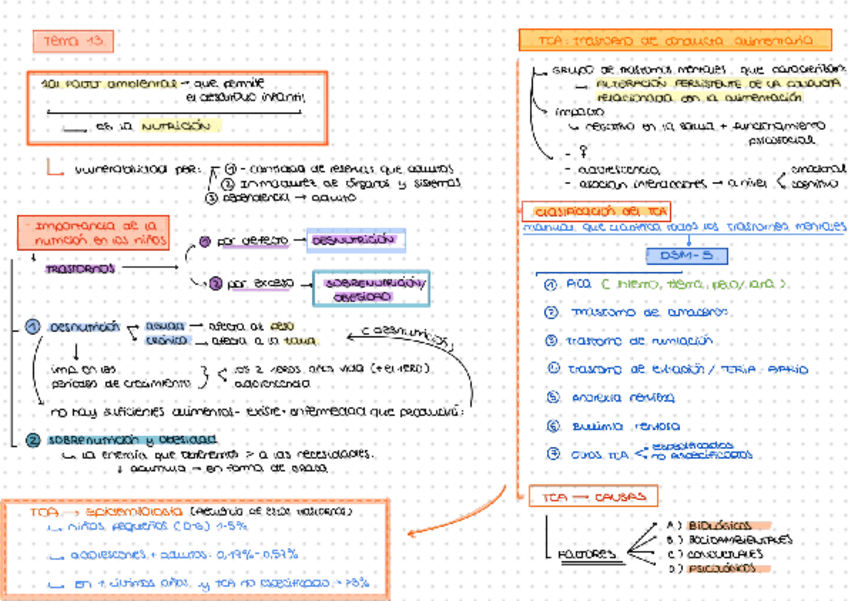 Tema 13.
1er Factor ambiental → que permite
el desarrollo infantil
es la NUTRICIÓN.
vulnerabilidad por:
① - cantidad de reservas que adultos
② Inmadurez de órganos y sistemas
③ dependencia → adulto
- Importancia de la
nutrición en los niños
TRASTORNOS
① por defecto → DESNUTRICIÓN
② por exceso → SOBRENUTRICIÓN/
OBESIDAD
① DESNUTRICIÓN
aguda → afecta al peso
crónica → afecta a la talla
(desnutrición)
imp en los
períodos de crecimiento
los 2 1eros años vida (+ el 1ero)
adolescencia
no hay suficientes alimentos - existe + enfermedad que
② SOBRENUTRICIÓN y OBESIDAD
la energía que > a las necesidades.
↓ acumula → en forma de grasa.
TCA → epidemiología ( de estos trastornos)
niños pequeños (0-6) 1-5%
adolescentes + adultos: 0,17% - 0,57%
en últimos años y TCA no especificado
TCA: trastorno de conducta alimentaria
GRUPO de trastornos mentales que caracterizan:
ALTERACIÓN PERSISTENTE DE LA CONDUCTA
relacionada con la alimentación
impacto
negativo en la salud + funcionamiento
psicosocial
- ♀
- adolescencia
- asocian interacciones → a nivel
emocional
cognitivo
CLASIFICACIÓN DEL TCA
manual que clasifica todos los trastornos mentales
DSM-5
① PICA ( hierro, tierra, pelo/lana ).
② Trastorno de
③ Trastorno de rumiación
④ Trastorno de evitación /
⑤ Anorexia nerviosa
⑥ Bulimia nerviosa
⑦ Otros TCA
especificados
no especificados
TCA → CAUSAS
FACTORES
A ) BIOLÓGICOS
B ) SOCIOAMBIENTALES
C ) CONDUCTUALES
D ) PSICOLÓGICOS